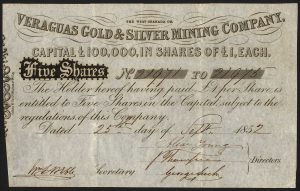 THE NEW GRANADA OR
VERAGUAS GOLD & SILVER MINING COMPANY,
CAPITAL £100,000, IN SHARES OF £1, EACH.
Five Shares No TO
The Holder hereof having paid £1 per Share, is
entitled to Five Shares in the Capital, subject to the
regulations of this Company.
Dated 25th day of Sept. 1852
Secretary
Directors.